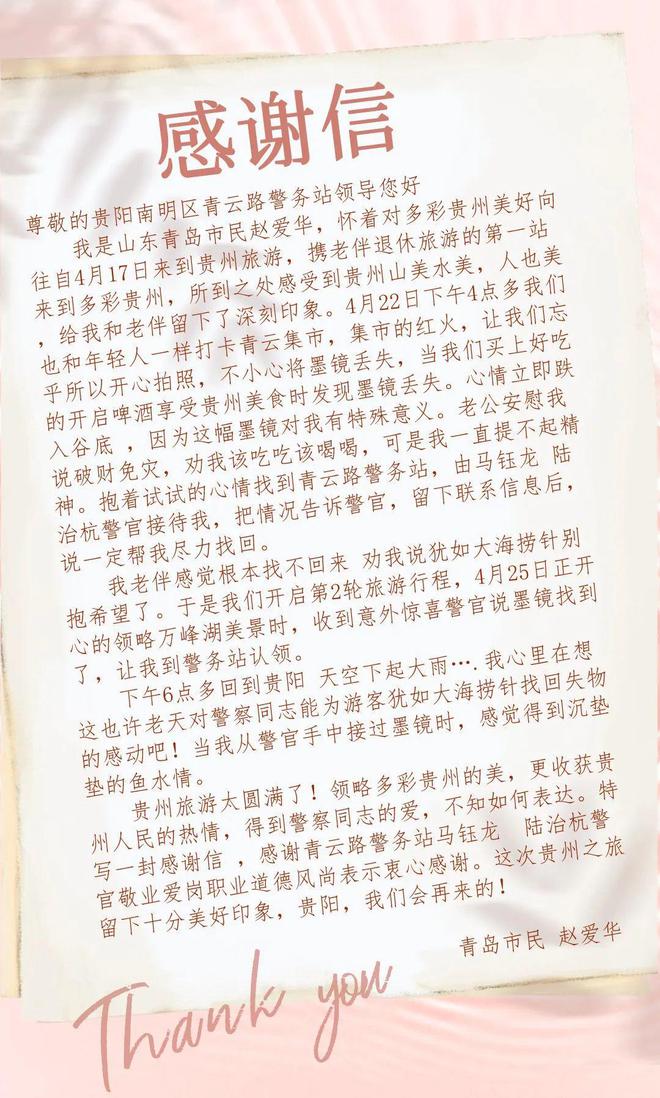 感谢信
尊敬的贵阳南明区青云路警务站领导您好
我是山东青岛市民赵爱华，怀着对多彩贵州美好向
往自4月17日来到贵州旅游，携老伴退休旅游的第一站
来到多彩贵州，所到之处感受到贵州山美水美，人也美
，给我和老伴留下了深刻印象。4月22日下午4点多我们
也和年轻人一样打卡青云集市，集市的红火，让我们忘
乎所以开心拍照，不小心将墨镜丢失，当我们买上好吃
的开启啤酒享受贵州美食时发现墨镜丢失。心情立即跌
入谷底 ，因为这幅墨镜对我有特殊意义。老公安慰我
说破财免灾，劝我该吃吃该喝喝，可是我一直提不起精
神。抱着试试的心情找到青云路警务站，由马钰龙 陆
治杭警官接待我，把情况告诉警官，留下联系信息后，
说一定帮我尽力找回。
我老伴感觉根本找不回来 劝我说犹如大海捞针别
抱希望了。于是我们开启第2轮旅游行程，4月25日正开
心的领略万峰湖美景时，收到意外惊喜警官说墨镜找到
了，让我到警务站认领。
下午6点多回到贵阳 天空下起大雨….我心里在想
这也许老天对警察同志能为游客犹如大海捞针找回失物
的感动吧！当我从警官手中接过墨镜时，感觉得到沉垫
垫的鱼水情。
贵州旅游太圆满了！领略多彩贵州的美，更收获贵
州人民的热情，得到警察同志的爱，不知如何表达。特
写一封感谢信 ，感谢青云路警务站马钰龙 陆治杭警
官敬业爱岗职业道德风尚表示衷心感谢。这次贵州之旅
留下十分美好印象，贵阳，我们会再来的！
青岛市民 赵爱华
Thank you